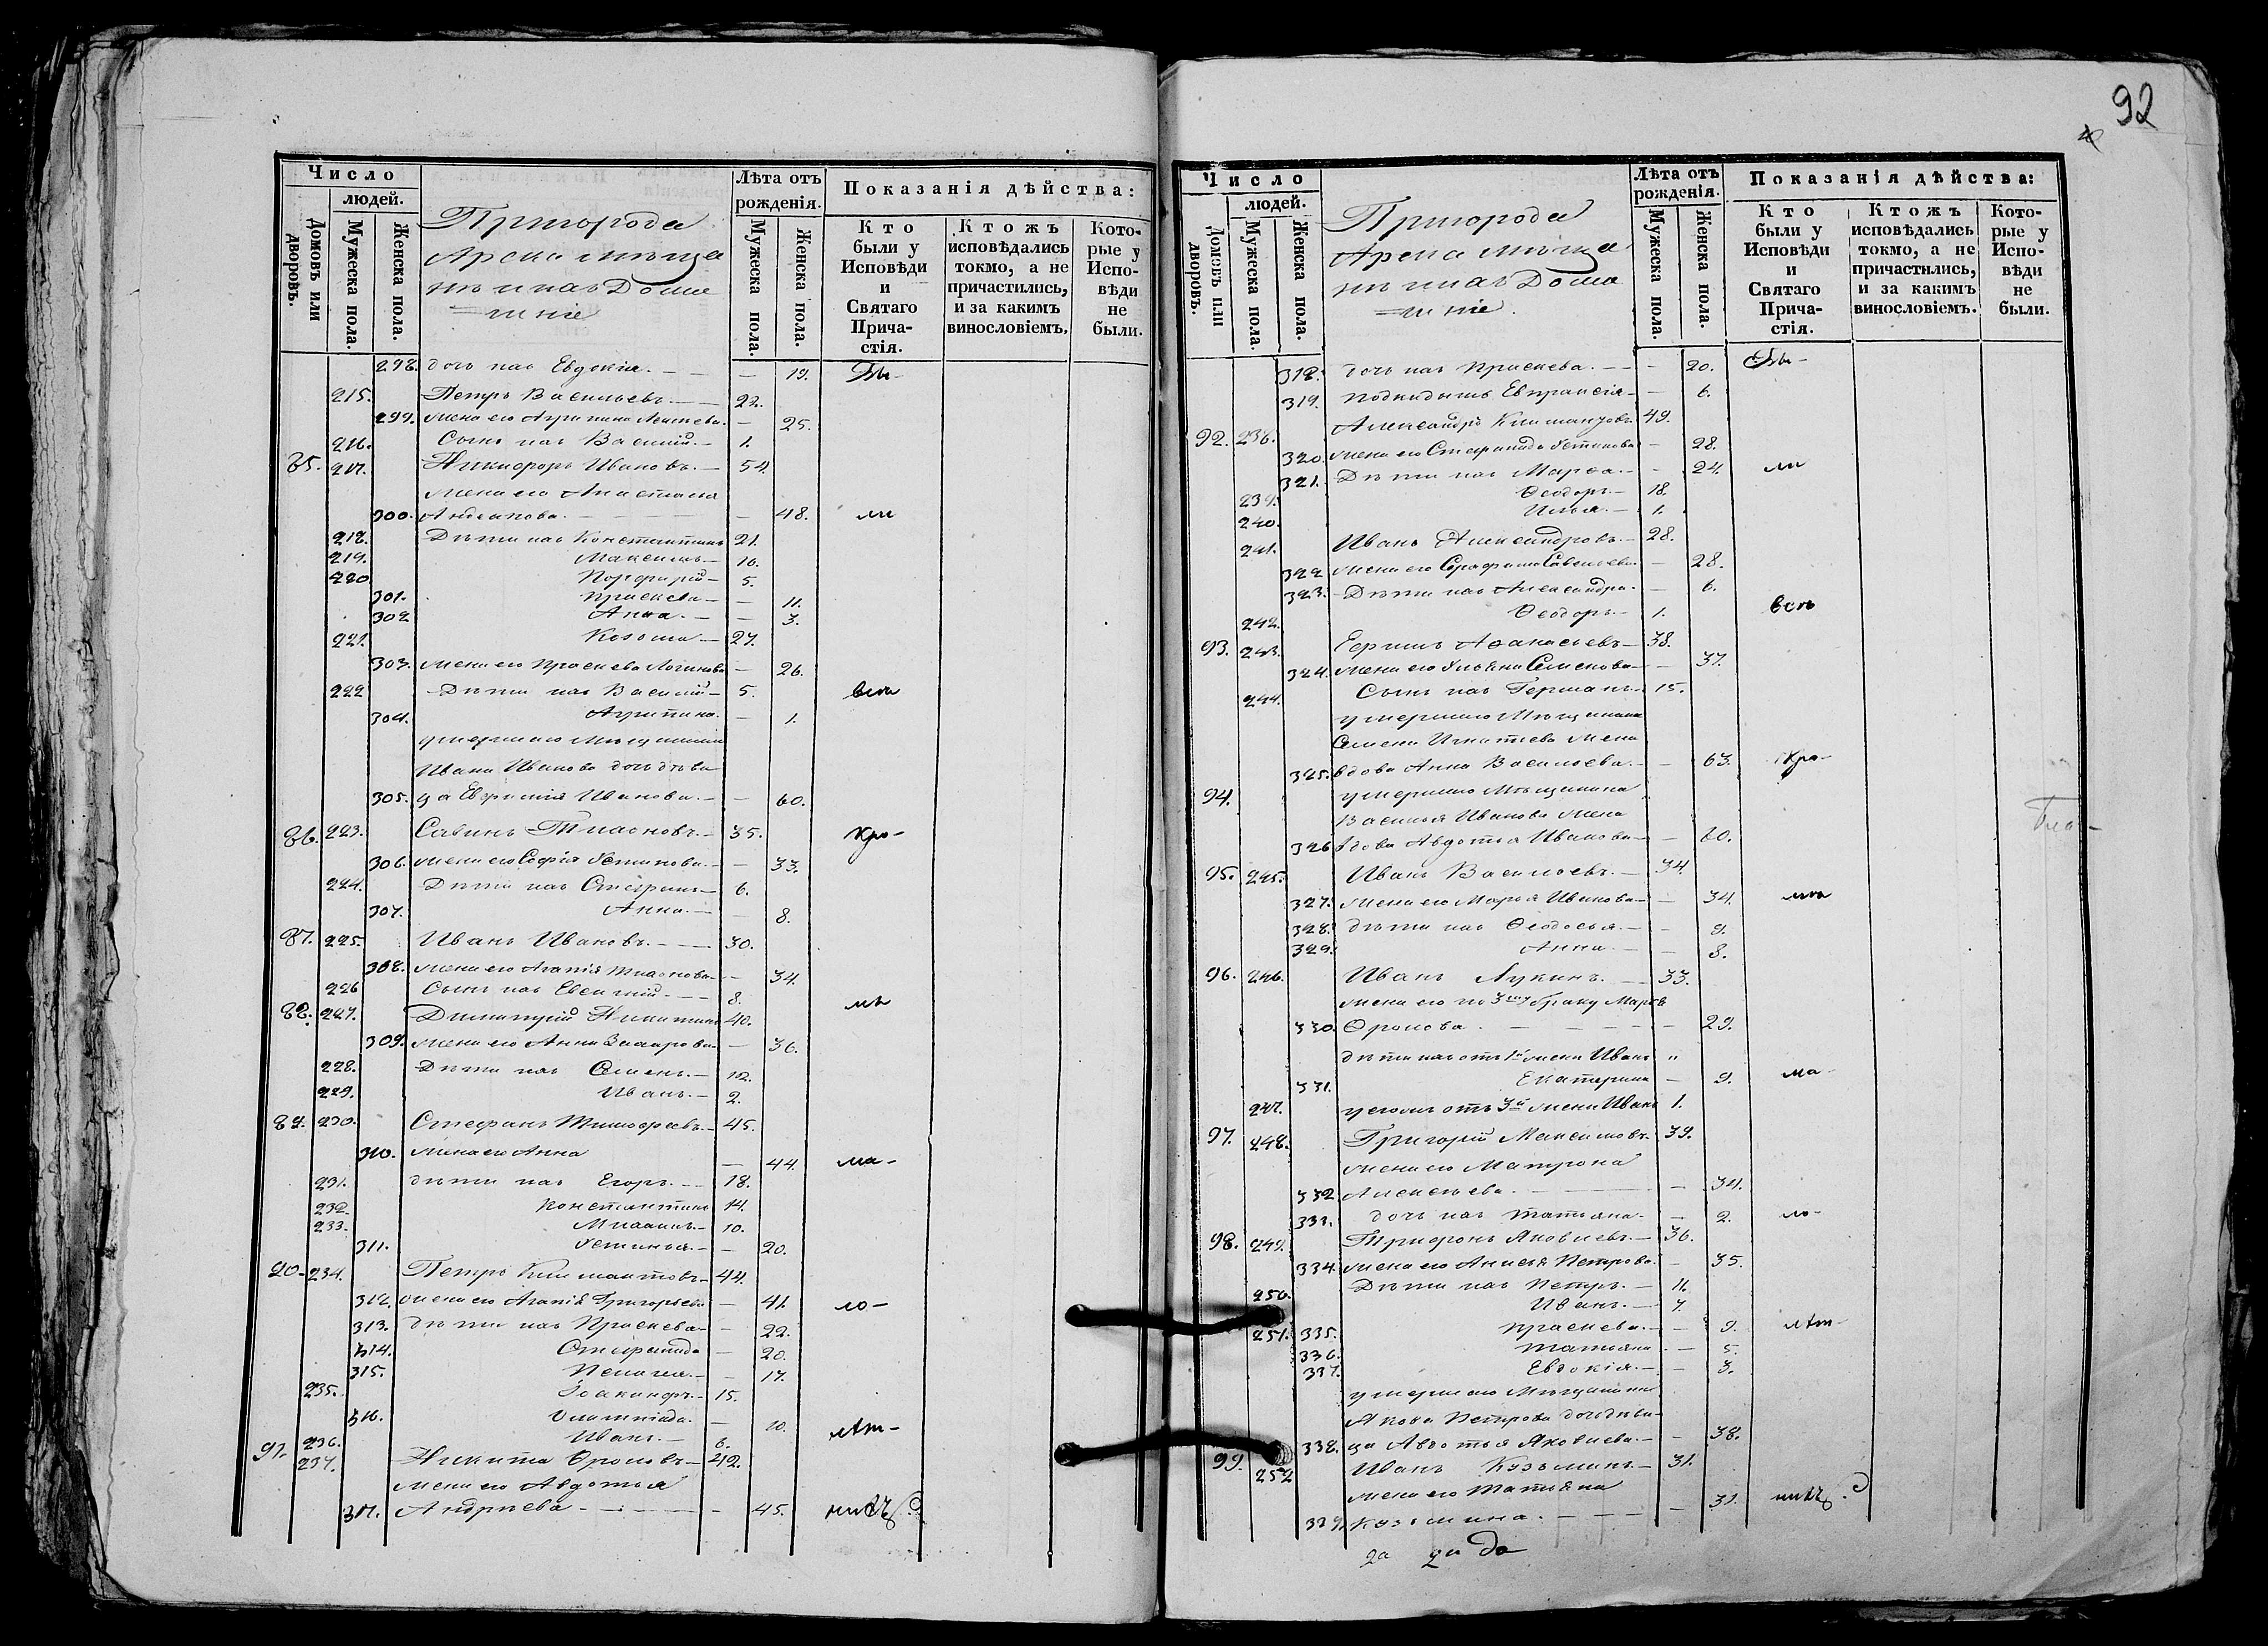 Число
людей.
Домовъ или дворовъ.
Мужеска пола.
Женска пола.
Пригорода
Арска мѣща
не и ихъ Дома
шніе
Лѣта отъ рожденія.
Мужеска пола.
Женска пола.
Показанія дѣйства:
Кто были у Исповѣди и Святаго Причастія.
Ктожъ исповѣдались токмо, а не причастились, и за какимъ винословіемъ.
Которые у Исповѣди не были.
298. дочь ихъ Евдокія. — 19. Бы-
215. Петръ Васильевъ. — 22.
299. жена его — 25.
216. Сынъ ихъ Василій. — 1.
85. 217. Никифоръ Ивановъ. — 54.
жена его Анастасія
300. — 48. ли
218. Дѣти ихъ Константинъ 21.
219. Максимъ — 10.
220 Порфирій — 5.
301. Праскева — 11.
302 Анна. — 3.
221. Козьма — 27.
303. жена его Праскева Логинова — 26.
222 Дѣти ихъ Василій — 5. всѣ
304. Агрипина. — 1.
умершаго Мѣщанина
Ивана Иванова дочь дѣви
305. ца Евфимія Иванова. — 60.
86. 223. Савинъ — 35. Кро-
306. жена его Софія Устинова. — 33.
224. Дѣти ихъ Стефанъ — 6.
307. Анна. — 8.
87. 225. Иванъ Ивановъ. — 30.
308. жена его Агапія — 34.
226 Сынъ ихъ Евгеній. — 8. мѣ
88. 227. Димитрій Никитинъ 40.
309. жена его Анна Захарова — 36.
228. Дѣти ихъ Семенъ. — 12.
229. Иванъ. — 2.
89. 230. Стефанъ Тимофеевъ. — 45.
310. жена его Анна — 44. ма-
231. дѣти ихъ Егоръ. — 18.
232. Константинъ 14.
233. Михаилъ — 10.
311. Устинья. — 20.
90 - 234. Петръ — 44.
312. жена его Агапія Григорьева — 41. ло-
313. дѣти ихъ Праскева — 22.
314. Стефанида — 20.
315. Пелагея. — 17.
235. Іоакимфъ — 15.
316. Олимпіада. — 10.
236. Иванъ. — 6. лѣт-
91. 237. Никита Фроловъ — 42.
жена его Авдотья
317. Андрѣева — 45. нихъ.
92
Число
людей.
Домовъ или дворовъ.
Мужеска пола.
Женска пола.
Пригорода
Арска мѣща
не и ихъ Дома
шніе.
Лѣта отъ рожденія.
Мужеска пола.
Женска пола.
Показанія дѣйства:
Кто были у Исповѣди и Святаго Причастія.
Ктожъ исповѣдались токмо, а не причастились, и за какимъ винословіемъ.
Которые у Исповѣди не были.
318. дочь ихъ Праскева. — 20. Бы-
319. подкидышъ Евпраксія — 6.
92. 238. Александръ 49.
320. жена его Стефанида Устинова — 28.
321. Дѣти ихъ Марѳа. — 24. ли
239. Ѳеодоръ. — 18.
240. Илья. — 1.
241. Иванъ Александровъ. — 28.
322 жена его Серафима Савельева. — 28.
323. Дѣти ихъ Александра. — 6.
242. Ѳеодоръ — 1. всѣ
93. 243. Аѳанасьевъ — 38.
324. жена его Ульяна Семенова — 37.
244. Сынъ ихъ Германъ. 15.
умершаго Мѣщанина
Семена Игнатьева жена
325. вдова Анна Васильева. — 63. Кро-
94. умершаго Мѣщанина
Василья Иванова жена
326 вдова Авдотья Иванова — 60.
95. 245. Иванъ Васильевъ. — 34.
327. жена его Марья Иванова — 34. мѣ
328. дѣти ихъ Ѳеодосья. — 9.
329. Анна. — 8.
96. 246. Иванъ Лукинъ. — 33.
жена его по 3му браку Марѳа
330. Фролова. — 29.
дѣти ихъ отъ 1й жены Иванъ "
331. Екатерина — 9. ма-
247. у его отъ 3й жены Иванъ 1.
97. 248. Григорій Максимовъ. 39.
жена его Матрона
332 Алексѣева. — 34.
333. дочь ихъ Татьяна. — 2. ло-
98. 249. Трифонъ Яковлевъ. — 36.
334. жена его Анисья Петрова. — 35.
250. Дѣти ихъ Петръ. — 11.
251. Иванъ. — 7.
335. Праскева. — 9. лѣт-
336. Татьяна. — 5.
337. Евдокія. — 3.
умершаго Мѣщанина
Якова Петрова дочь дѣви-
338. ца Авдотья Яковлева. — 38.
99. 252 Иванъ Кузьминъ. — 31.
жена его Татьяна
339. Кузьмина. — 31. нихъ.